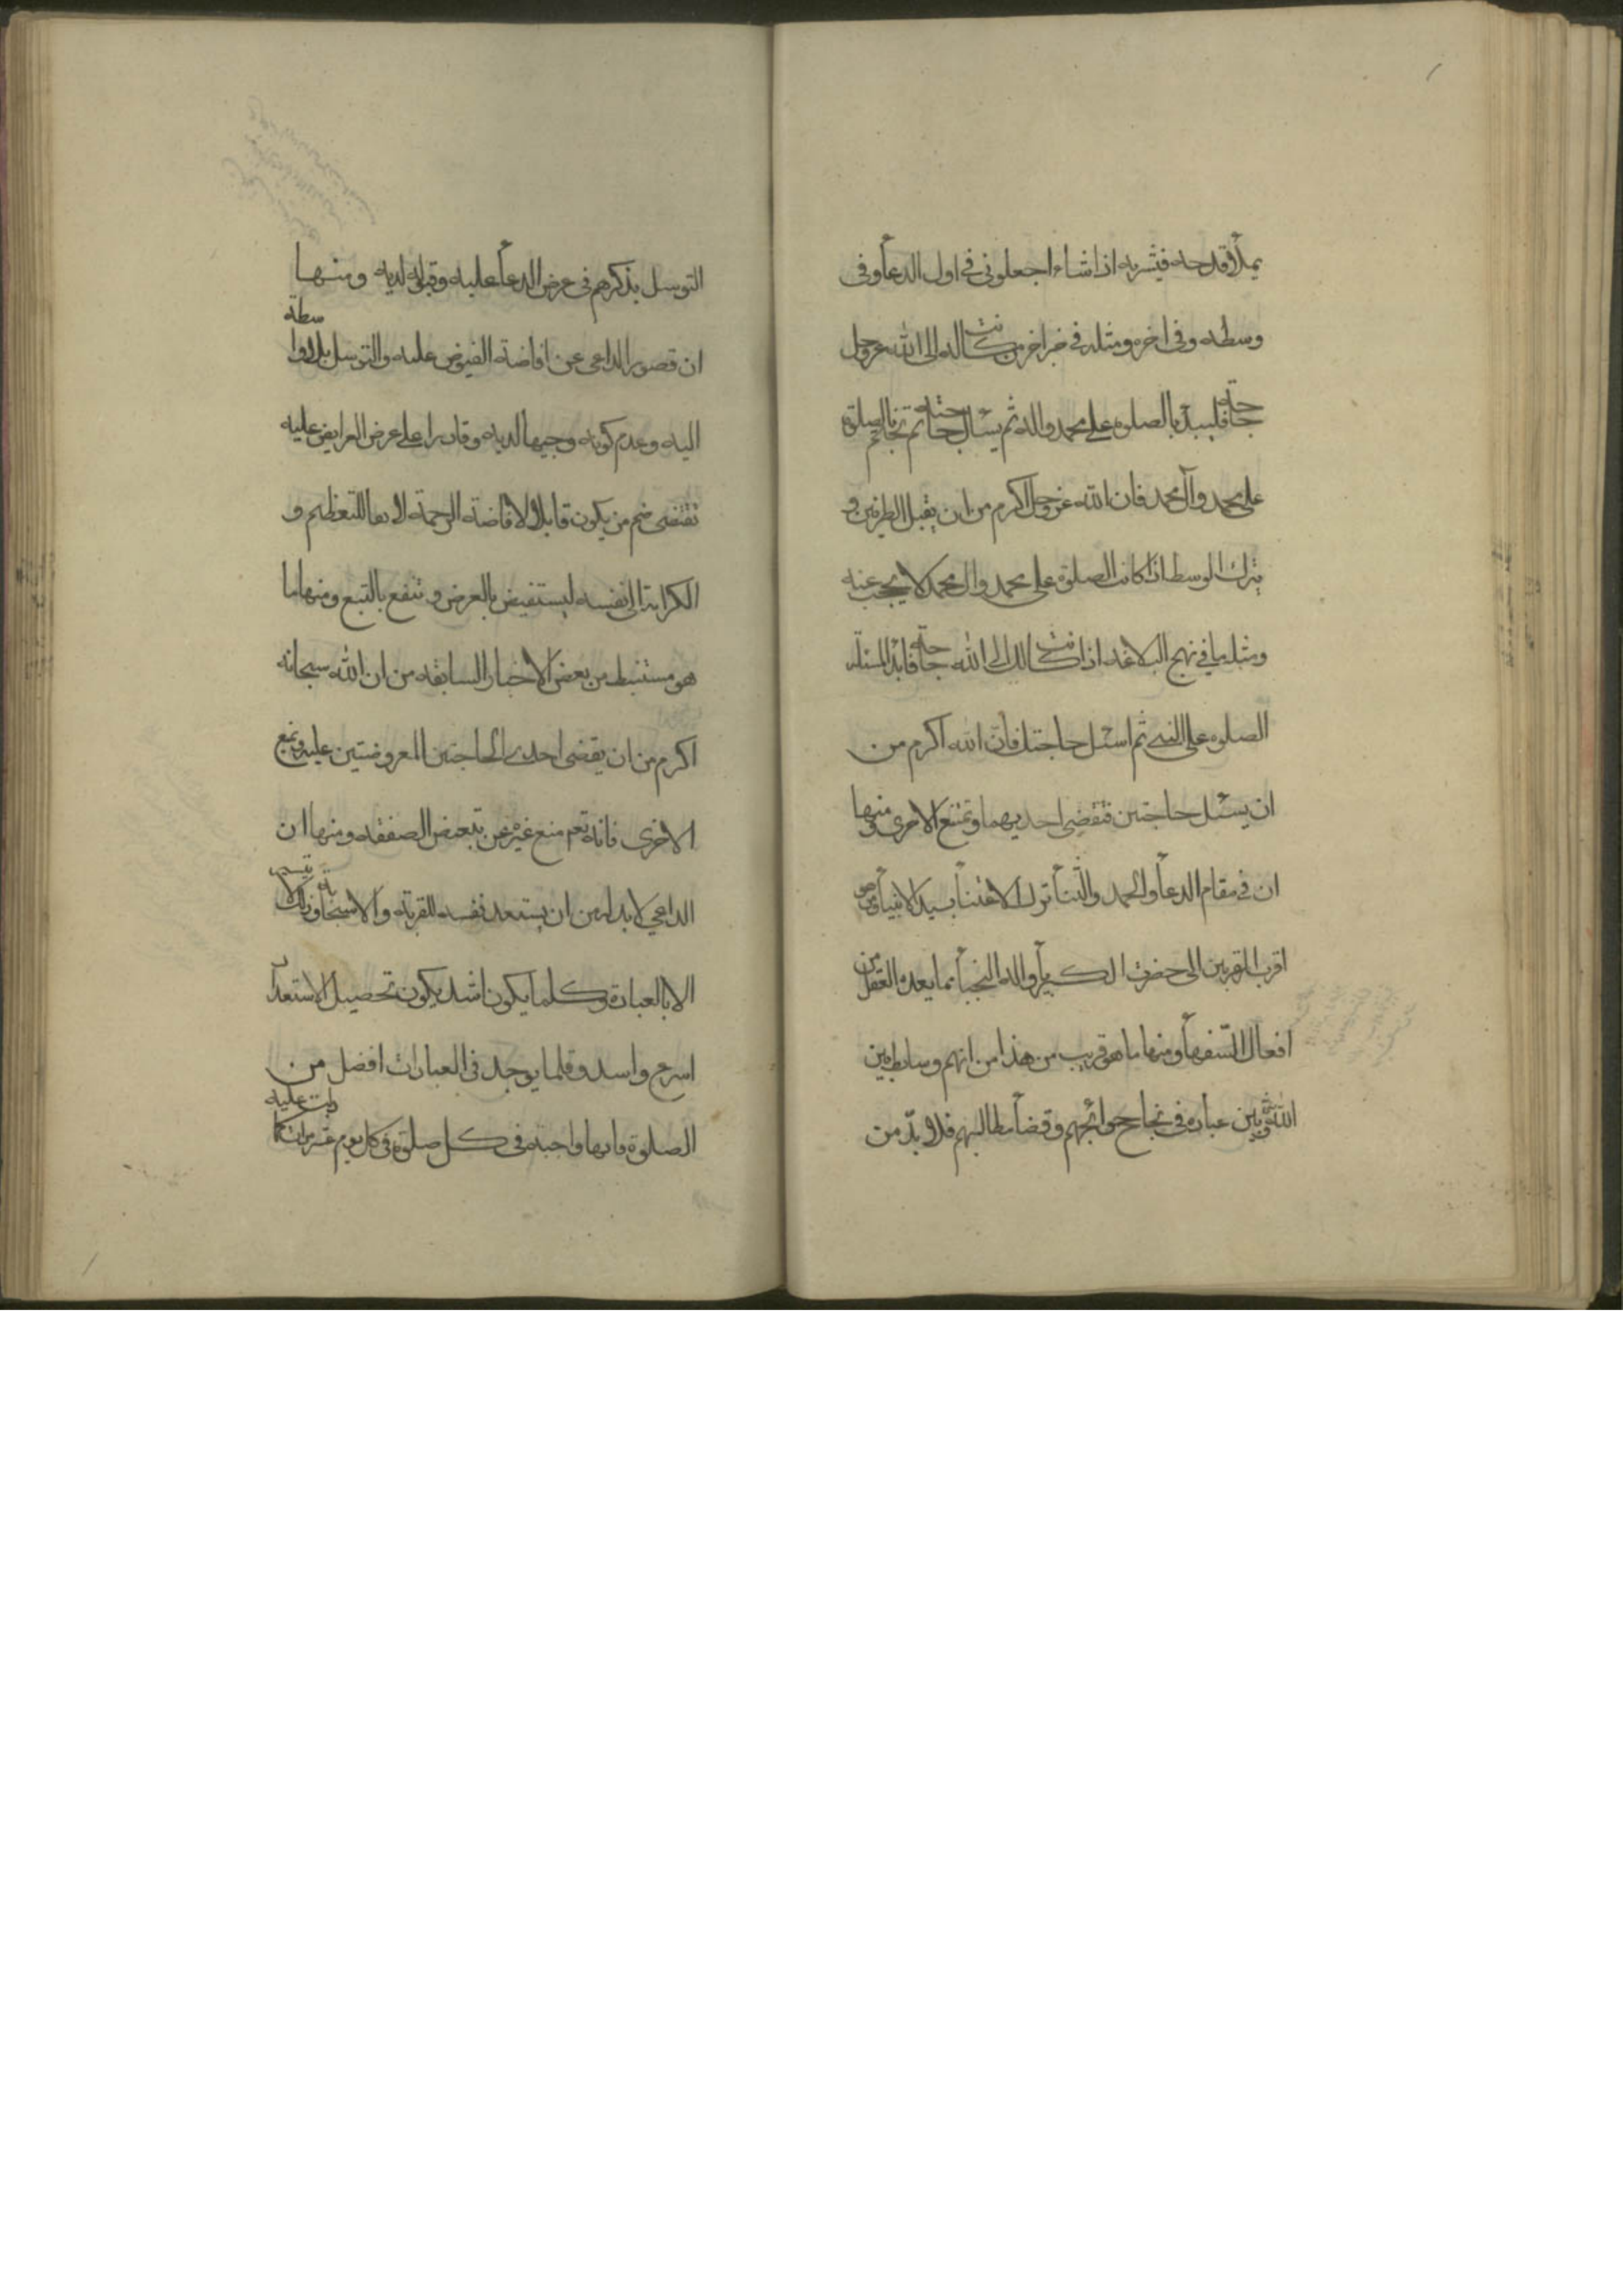 يملأ قدحه فيشربه اذا شاء اجعلوني في اول الدعأ و في
وسطه و في اخره و مثله في خبر اخر من كانت له الى الله عز و جل
حاجة فليبدأ بالصلوة على محمد و اله ثم يسئل حاجته ثم يختم بالصلوة
على محمد و آل محمد فان الله عز و جل اكرم من ان يقبل الطرفين و
يترك الوسط اذا كانت الصلوة على محمد و ال محمد لا يحجب عنه
و مثله ما في نهج البلاغه اذا كانت لك الى الله حاجة فابدأ بمسئلة
الصلوه على النبي ثم اسئل حاجتك فان الله اكرم من
ان يسئل حاجتين فتقضي احديهما و تمنع الاخرى و منها
ان في مقام الدعأ و الحمد و الثنأ ترك الاعتنأ بسيد الانبيأ و هو
اقرب المقربين الى حضرت الكبريأ و اله النجبأ مما يعده العقل من
افعال السفهأ و منها ما هو قريب من هذا من انهم وسايط بين
الله و بين عباده في نجاح حوائجهم و قضأ مطالبهم فلا بدّ من
التوسل بذكرهم في عرض الدعأ عليه و قبوله لديه و منها
ان قصور الداعى عن افاضة الفيوض عليه و التوسل بلا واسطة
اليه و عدم كونه وجيها لديه و قادرا على عرض العرايض عليه
تقتضى ضم من يكون قابلا لافاضة الرحمة لا بقا للتعظيم و
الكرامة الى نفسه ليستفيض بالعرض و تنفع بالتبع و منها ما
هو مستنبط من بعض الاخبار السابقه من ان الله سبحانه
اكرم من ان يقضى احدى الحاجتين المعروضتين عليه و يمنع
الاخرى فانه تعم منع غيره عن تبعض الصفقه و منها ان
الداعي لا بد له من ان يستعد نفسه للقربة و الاستجابة و ذلك لا يتيسر
الا بالعبادة و كلما يكون اشد يكون تحصيل الاستعداد
اسرع و اسد و قلما يوجد في العبادات افضل من
الصلوة فانها واجبة في كل صلوة في كل يوم عشر مرات كما دلت عليه